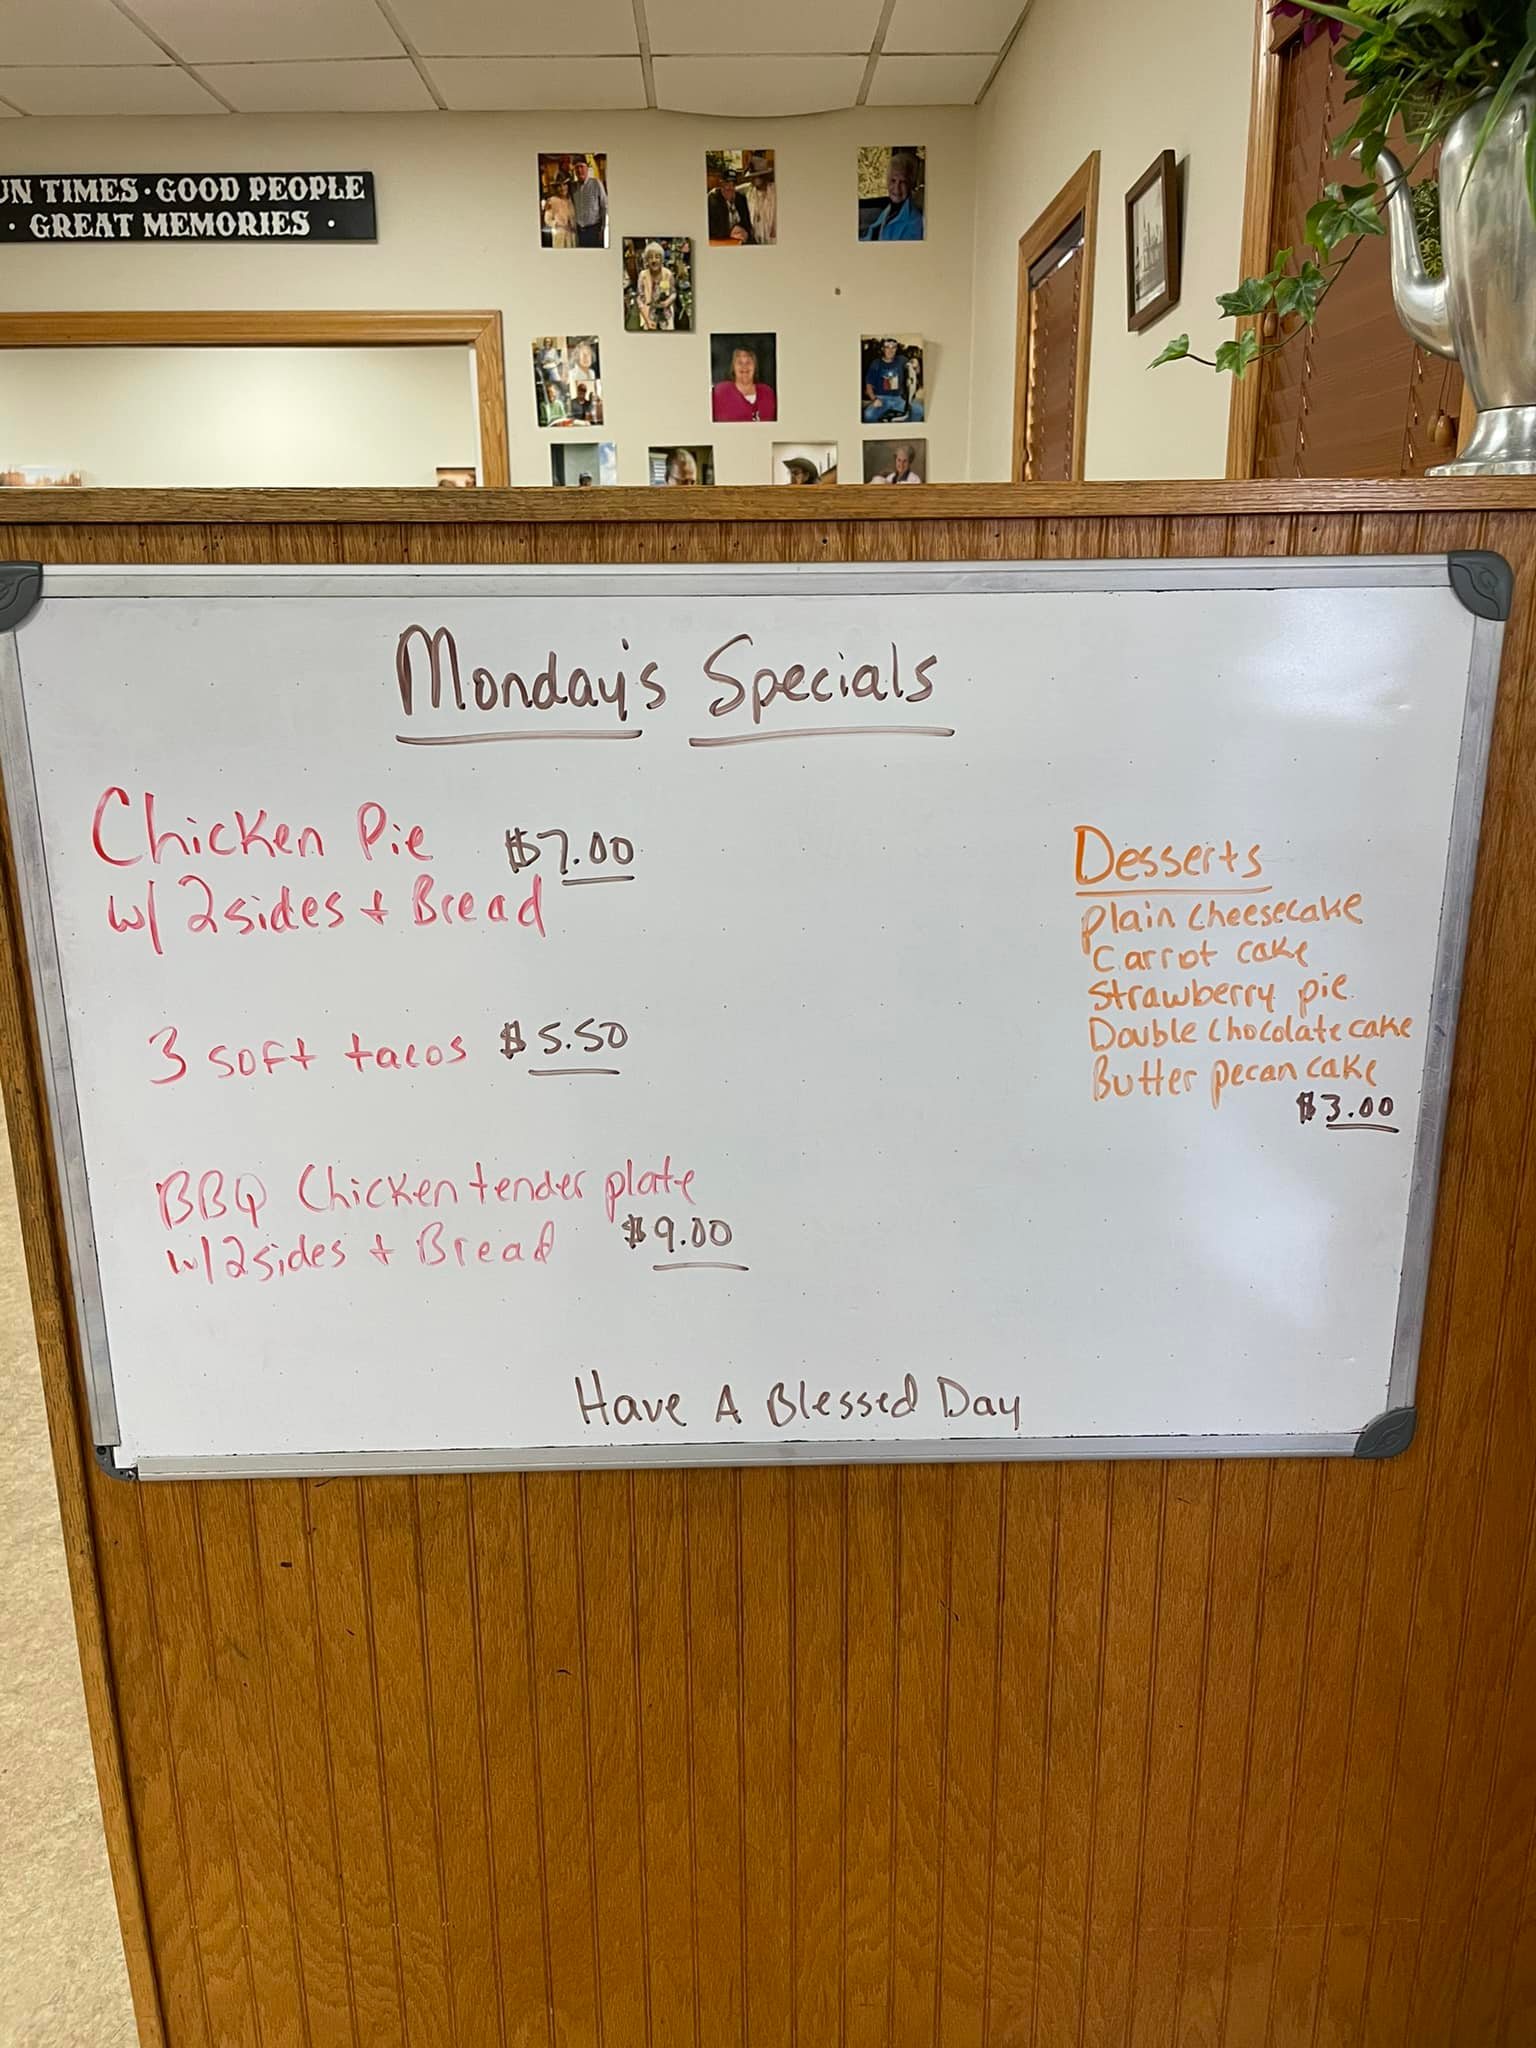 UN TIMES · GOOD PEOPLE
· GREAT MEMORIES ·
Monday's Specials
Chicken Pie $7.00
w/ 2 sides + Bread
3 soft tacos $5.50
BBQ Chicken tender plate
w/ 2 sides + Bread $9.00
Desserts
Plain Cheesecake
Carrot cake
Strawberry pie
Double Chocolate cake
Butter pecan cake
$3.00
Have A Blessed Day